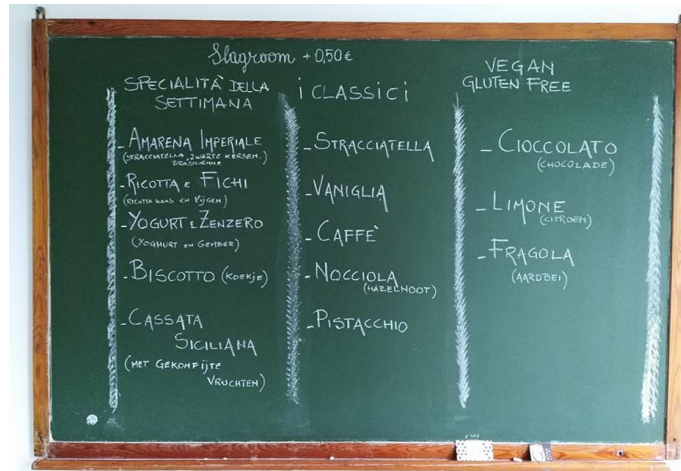 Slagroom +0,50€
SPECIALITÀ DELLA
SETTIMANA
- AMARENA IMPERIALE
(STRACCIATELLA, ZWARTE KERSEN,
BRESILIENNE
- RICOTTA E FICHI
(RICOTTA KAAS EN VIJGEN)
- YOGURT E ZENZERO
(YOGHURT EN GEMBER)
- BISCOTTO (KOEKJE)
- CASSATA
SICILIANA
(MET GEKONFIJTE
VRUCHTEN)
i CLASSICI
- STRACCIATELLA
- VANIGLIA
- CAFFÈ
- NOCCIOLA
(HAZELNOOT)
- PISTACCHIO
VEGAN
GLUTEN FREE
- CIOCCOLATO
(CHOCOLADE)
- LIMONE
(CITROEN)
- FRAGOLA
(AARDBEI)